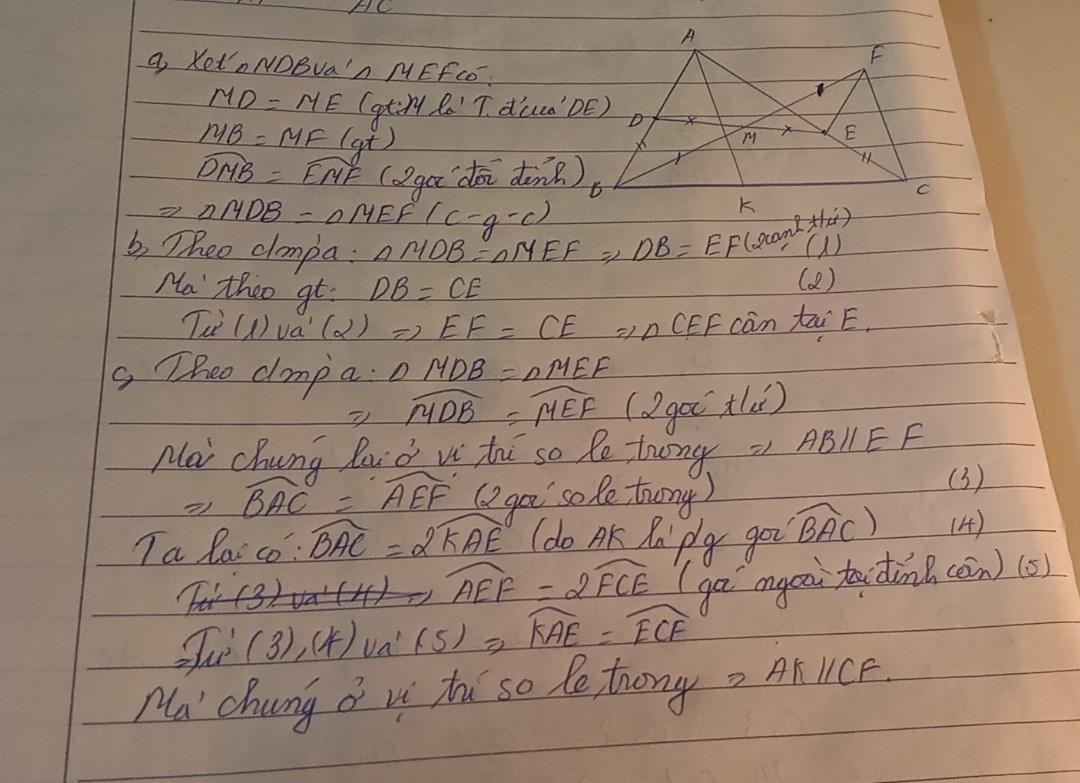 AC
a, Xét △MDB và △MEF có:
MD = ME (gt: M là T. đ của DE)
MB = MF (gt)
DMB = EMF (2 góc đối đỉnh)
⇒ △MDB = △MEF (c-g-c)
b, Theo cmpa: △MDB = △MEF ⇒ DB = EF (2 cạnh t/ứ) (1)
Mà theo gt: DB = CE (2)
Từ (1) và (2) ⇒ EF = CE ⇒ △CEF cân tại E.
c, Theo cmpa: △MDB = △MEF
⇒ MDB = MEF (2 góc t/ứ)
Mà chúng lại ở vị trí so le trong ⇒ AB // EF
⇒ BAC = AEF (2 góc so le trong) (3)
Ta lại có: BAC = 2KAE (do AK là p/g góc BAC) (4)
Từ (3) và (4) ⇒ AEF = 2FCE (góc ngoài tại đỉnh cân) (5)
⇒ Từ (3), (4) và (5) ⇒ KAE = ECF
Mà chúng ở vị trí so le trong ⇒ AK // CF.
A
F
D
M
E
B
K
C